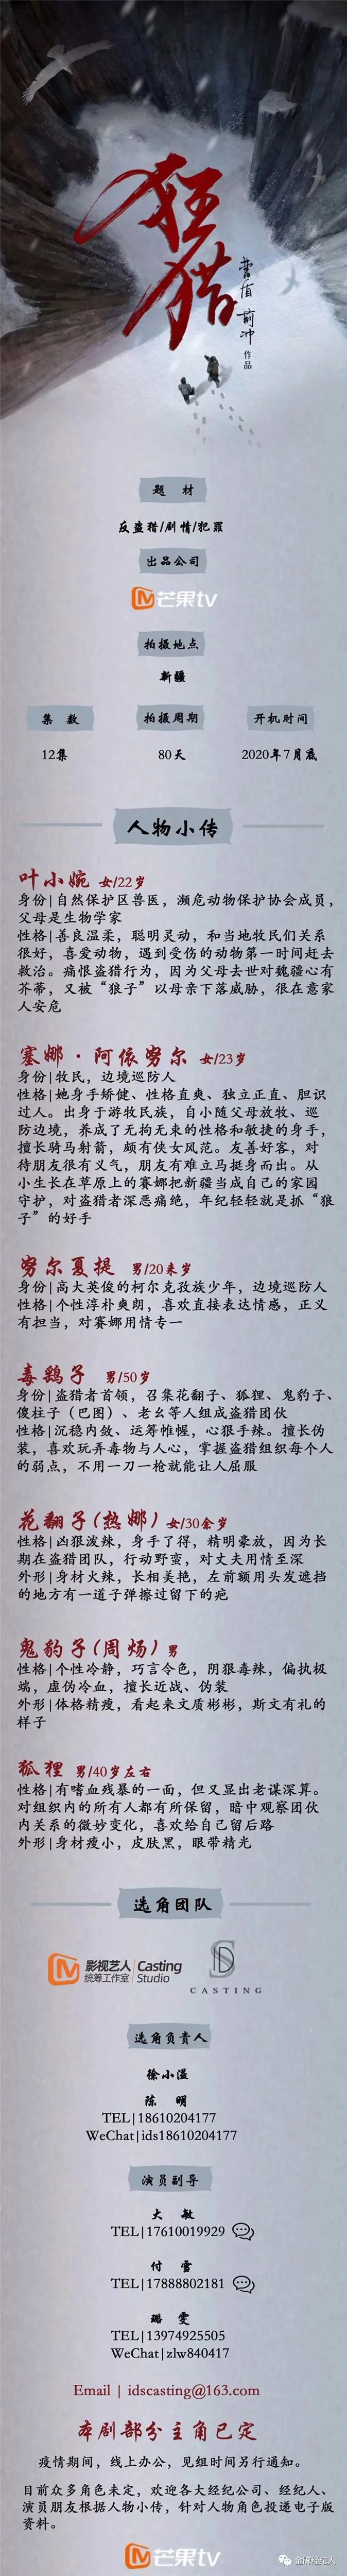 狂猎
曹盾 前冲 作品
题 材
反盗猎/剧情/犯罪
出品公司
芒果tv
拍摄地点
新疆
集 数 拍摄周期 开机时间
12集 80天 2020年7月底
人物小传
叶小婉 女/22岁
身份|自然保护区兽医，濒危动物保护协会成员，
父母是生物学家
性格|善良温柔，聪明灵动，和当地牧民们关系
很好，喜爱动物，遇到受伤的动物第一时间赶去
救治。痛恨盗猎行为，因为父母去世对魏疆心有
芥蒂，又被“狼子”以母亲下落威胁，很在意家
人安危
塞娜·阿依努尔 女/23岁
身份|牧民，边境巡防人
性格|她身手矫健、性格直爽、独立正直、胆识
过人。出身于游牧民族，自小随父母放牧、巡
防边境，养成了无拘无束的性格和敏捷的身手，
擅长骑马射箭，颇有侠女风范。友善好客，对
待朋友很有义气，朋友有难立马挺身而出。从
小生长在草原上的赛娜把新疆当成自己的家园
守护，对盗猎者深恶痛绝，年纪轻轻就是抓“狼
子”的好手
努尔夏提 男/20来岁
身份|高大英俊的柯尔克孜族少年，边境巡防人
性格|个性淳朴爽朗，喜欢直接表达情感，正义
有担当，对赛娜用情专一
毒鹞子 男/50岁
身份|盗猎者首领，召集花翻子、狐狸、鬼豹子、
傻柱子（巴图）、老幺等人组成盗猎团伙
性格|沉稳内敛、运筹帷幄，心狠手辣。擅长伪
装，喜欢玩弄毒物与人心，掌握盗猎组织每个人
的弱点，不用一刀一枪就能让人屈服
花翻子(热娜) 女/30余岁
性格|凶狠泼辣，身手了得，精明豪放，因为长
期在盗猎团队，行动野蛮，对丈夫用情至深
外形|身材火辣，长相美艳，左前额用头发遮挡
的地方有一道子弹擦过留下的疤
鬼豹子(周炀) 男
性格|个性冷静，巧言令色，阴狠毒辣，偏执极
端，虚伪冷血，擅长近战、伪装
外形|体格精瘦，看起来文质彬彬，斯文有礼的
样子
狐狸 男/40岁左右
性格|有嗜血残暴的一面，但又显出老谋深算。
对组织内的所有人都有所保留，暗中观察团伙
内关系的微妙变化，喜欢给自己留后路
外形|身材瘦小，皮肤黑，眼带精光
选角团队
影视艺人 Casting
统筹工作室 Studio
SD
CASTING
选角负责人
徐小温
陈 明
TEL|18610204177
WeChat|ids18610204177
演员副导
大 敏
TEL|17610019929
付 雪
TEL|17888802181
璐 雯
TEL|13974925505
WeChat|zlw840417
Email | idscasting@163.com
本剧部分主角已定
疫情期间，线上办公，见组时间另行通知。
目前众多角色未定，欢迎各大经纪公司、经纪人、
演员朋友根据人物小传，针对人物角色投递电子版
资料。
芒果tv
金牌经纪人